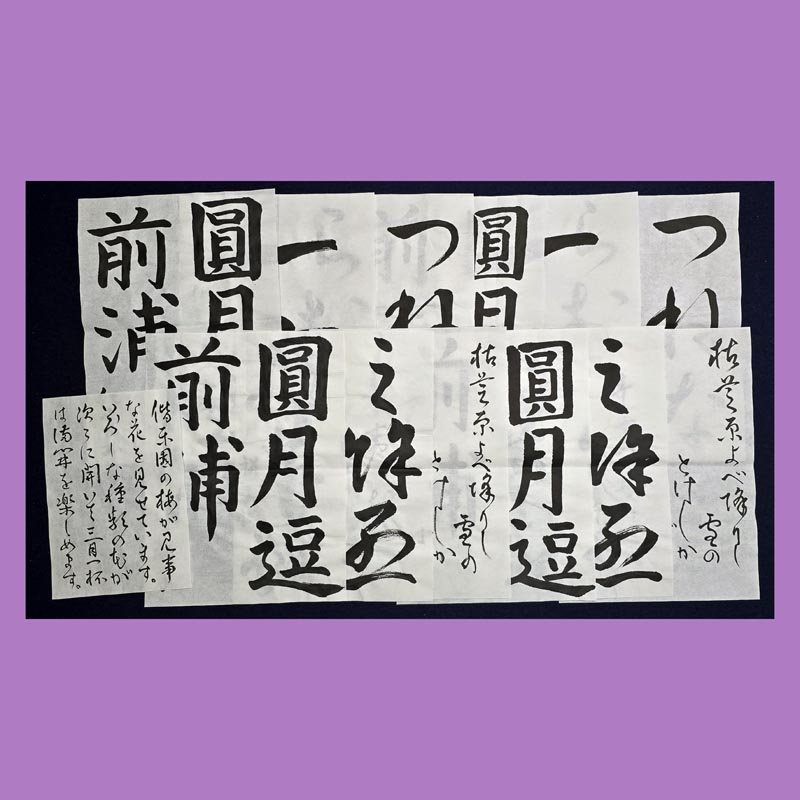 つれ
一
圓月
つね
一
圓月
前浦
枯芝原よべ降りし
雪の
とけしづか
之
圓月逗
枯芝原よべ降りし
雪の
之
圓月逗
前甫
偕楽園の梅が見事
な花を見せています。
いろいろな種類の花が
次々に開いて三月一杯
は満開を楽しめます。